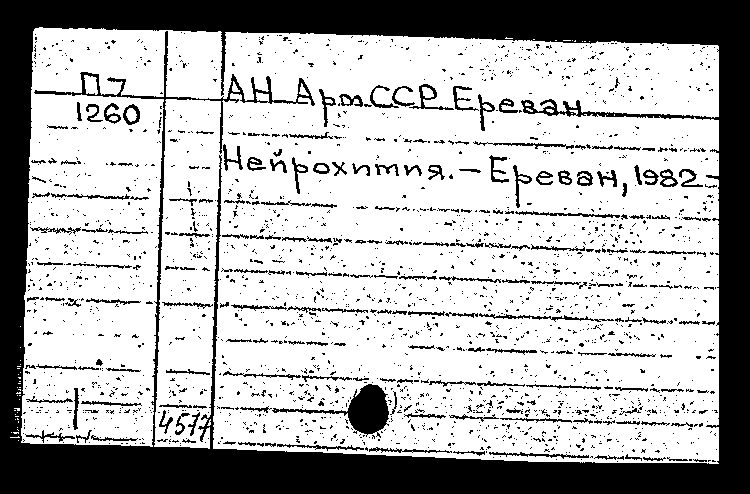 П7
1260
АН АрмССР Ереван
Нейрохимия. – Ереван, 1982 –
4517